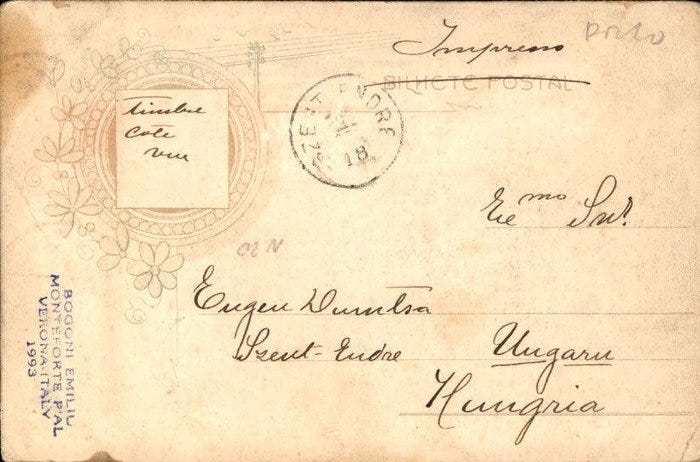 Impresso
Porto
BILHETE POSTAL
timbre
cote
vue
SZENT ENDRE
18
Exmo Snr.
Eugen Dumtsa
Szent-Endre
Ungarn
Hungria
BOGONI EMILIL
MONTEFORTE P'AL
VERONA-ITALY
1993